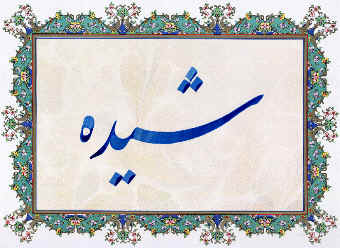 شیده